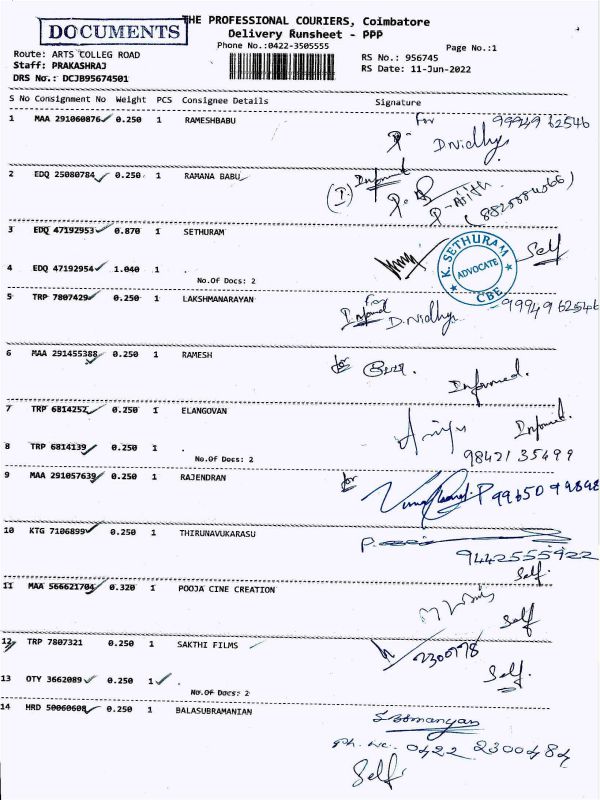 DOCUMENTS
THE PROFESSIONAL COURIERS, Coimbatore
Delivery Runsheet - PPP
Phone No.:0422-3505555
Page No.:1
Route: ARTS COLLEG ROAD
Staff: PRAKASHRAJ
DRS No.: DCJB95674501
RS No.: 956745
RS Date: 11-Jun-2022
S No Consignment No Weight PCS Consignee Details Signature
1 MAA 291060876 0.250 1 RAMESHBABU
For 99949 62546
D.Nidhy
2 EDQ 25080784 0.250 1 RAMANA BABU
(I) Informed
P-Ajith
3 EDQ 47192953 0.870 1 SETHURAM
K. SETHURAM
ADVOCATE
CBE
Self
4 EDQ 47192954 1.040 1
No.Of Docs: 2
5 TRP 7807429 0.250 1 LAKSHMANARAYAN
For
Informed D.Nidhy 99949 62546
6 MAA 291455388 0.250 1 RAMESH
for
Informed.
7 TRP 6814252 0.250 1 ELANGOVAN
Informed.
8 TRP 6814139 0.250 1
No.Of Docs: 2
98421 35499
9 MAA 291057639 0.250 1 RAJENDRAN
for
99650 99898
10 KTG 7106899 0.250 1 THIRUNAVUKARASU
9442555922
Self.
11 MAA 566621704 0.320 1 POOJA CINE CREATION
Self
12 TRP 7807321 0.250 1 SAKTHI FILMS
2300178
Self.
13 OTY 3662089 0.250 1
No.Of Docs: 2
14 HRD 50060608 0.250 1 BALASUBRAMANIAN
Ph. No. 0422 2300484
Self